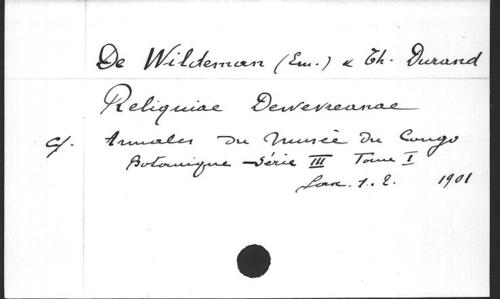 De Wildeman (Em.) & Th. Durand
Reliquiae Dewevreanae
cf. Annales du Musée du Congo
Botanique Série III Tome I
Fasc. 1. 2. 1901